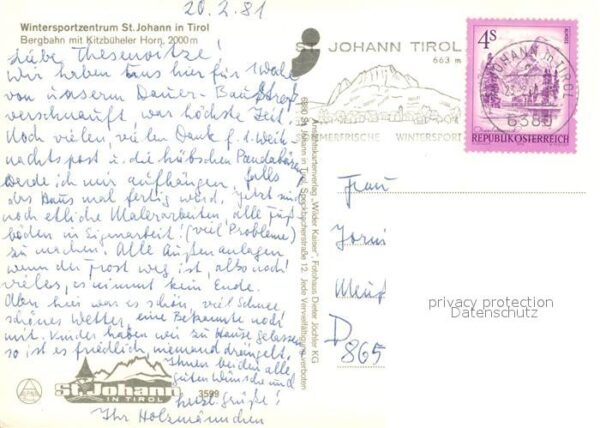 20.2.81
Wintersportzentrum St. Johann in Tirol
Bergbahn mit Kitzbüheler Horn, 2000 m
Liebe
Wir haben uns hier für 1 Woche
von unserm Dauer-Baustreß
verschnauft, war höchste Zeit.
Noch vielen, vielen Dank f. 1. Weih-
nachtspost u. die hübschen Pandabären
werde ich mir aufhängen, falls
das Haus mal fertig wird, jetzt sind
noch etliche Malerarbeiten, alle Fuß-
böden in Eigenarbeit! (viel Probleme)
zu machen. Alle Außenanlagen
wenn der Frost weg ist, also noch
vieles, es nimmt kein Ende.
Aber hier war es schön, viel Schnee
schönes Wetter, eine Bekannte noch
mit. Kinder haben wir zu Hause gelassen
so ist es friedlich niemand drängelt.
Ihnen beiden alles
guten Wünsche und
herzl. Grüße!
Ihr Holzmännchen
St. Johann
IN TIROL
3599
Ansichtskartenverlag „Wilder Kaiser", Fotohaus Dieter Jöchler KG
6380 St. Johann in Tirol, Speckbacherstraße 12. Jede Vervielfältigung verboten
ST. JOHANN TIROL
663 m
SOMMERFRISCHE WINTERSPORT
JOHANN in TIROL
6380
4 S
REPUBLIK ÖSTERREICH
Frau
D
865
privacy protection
Datenschutz